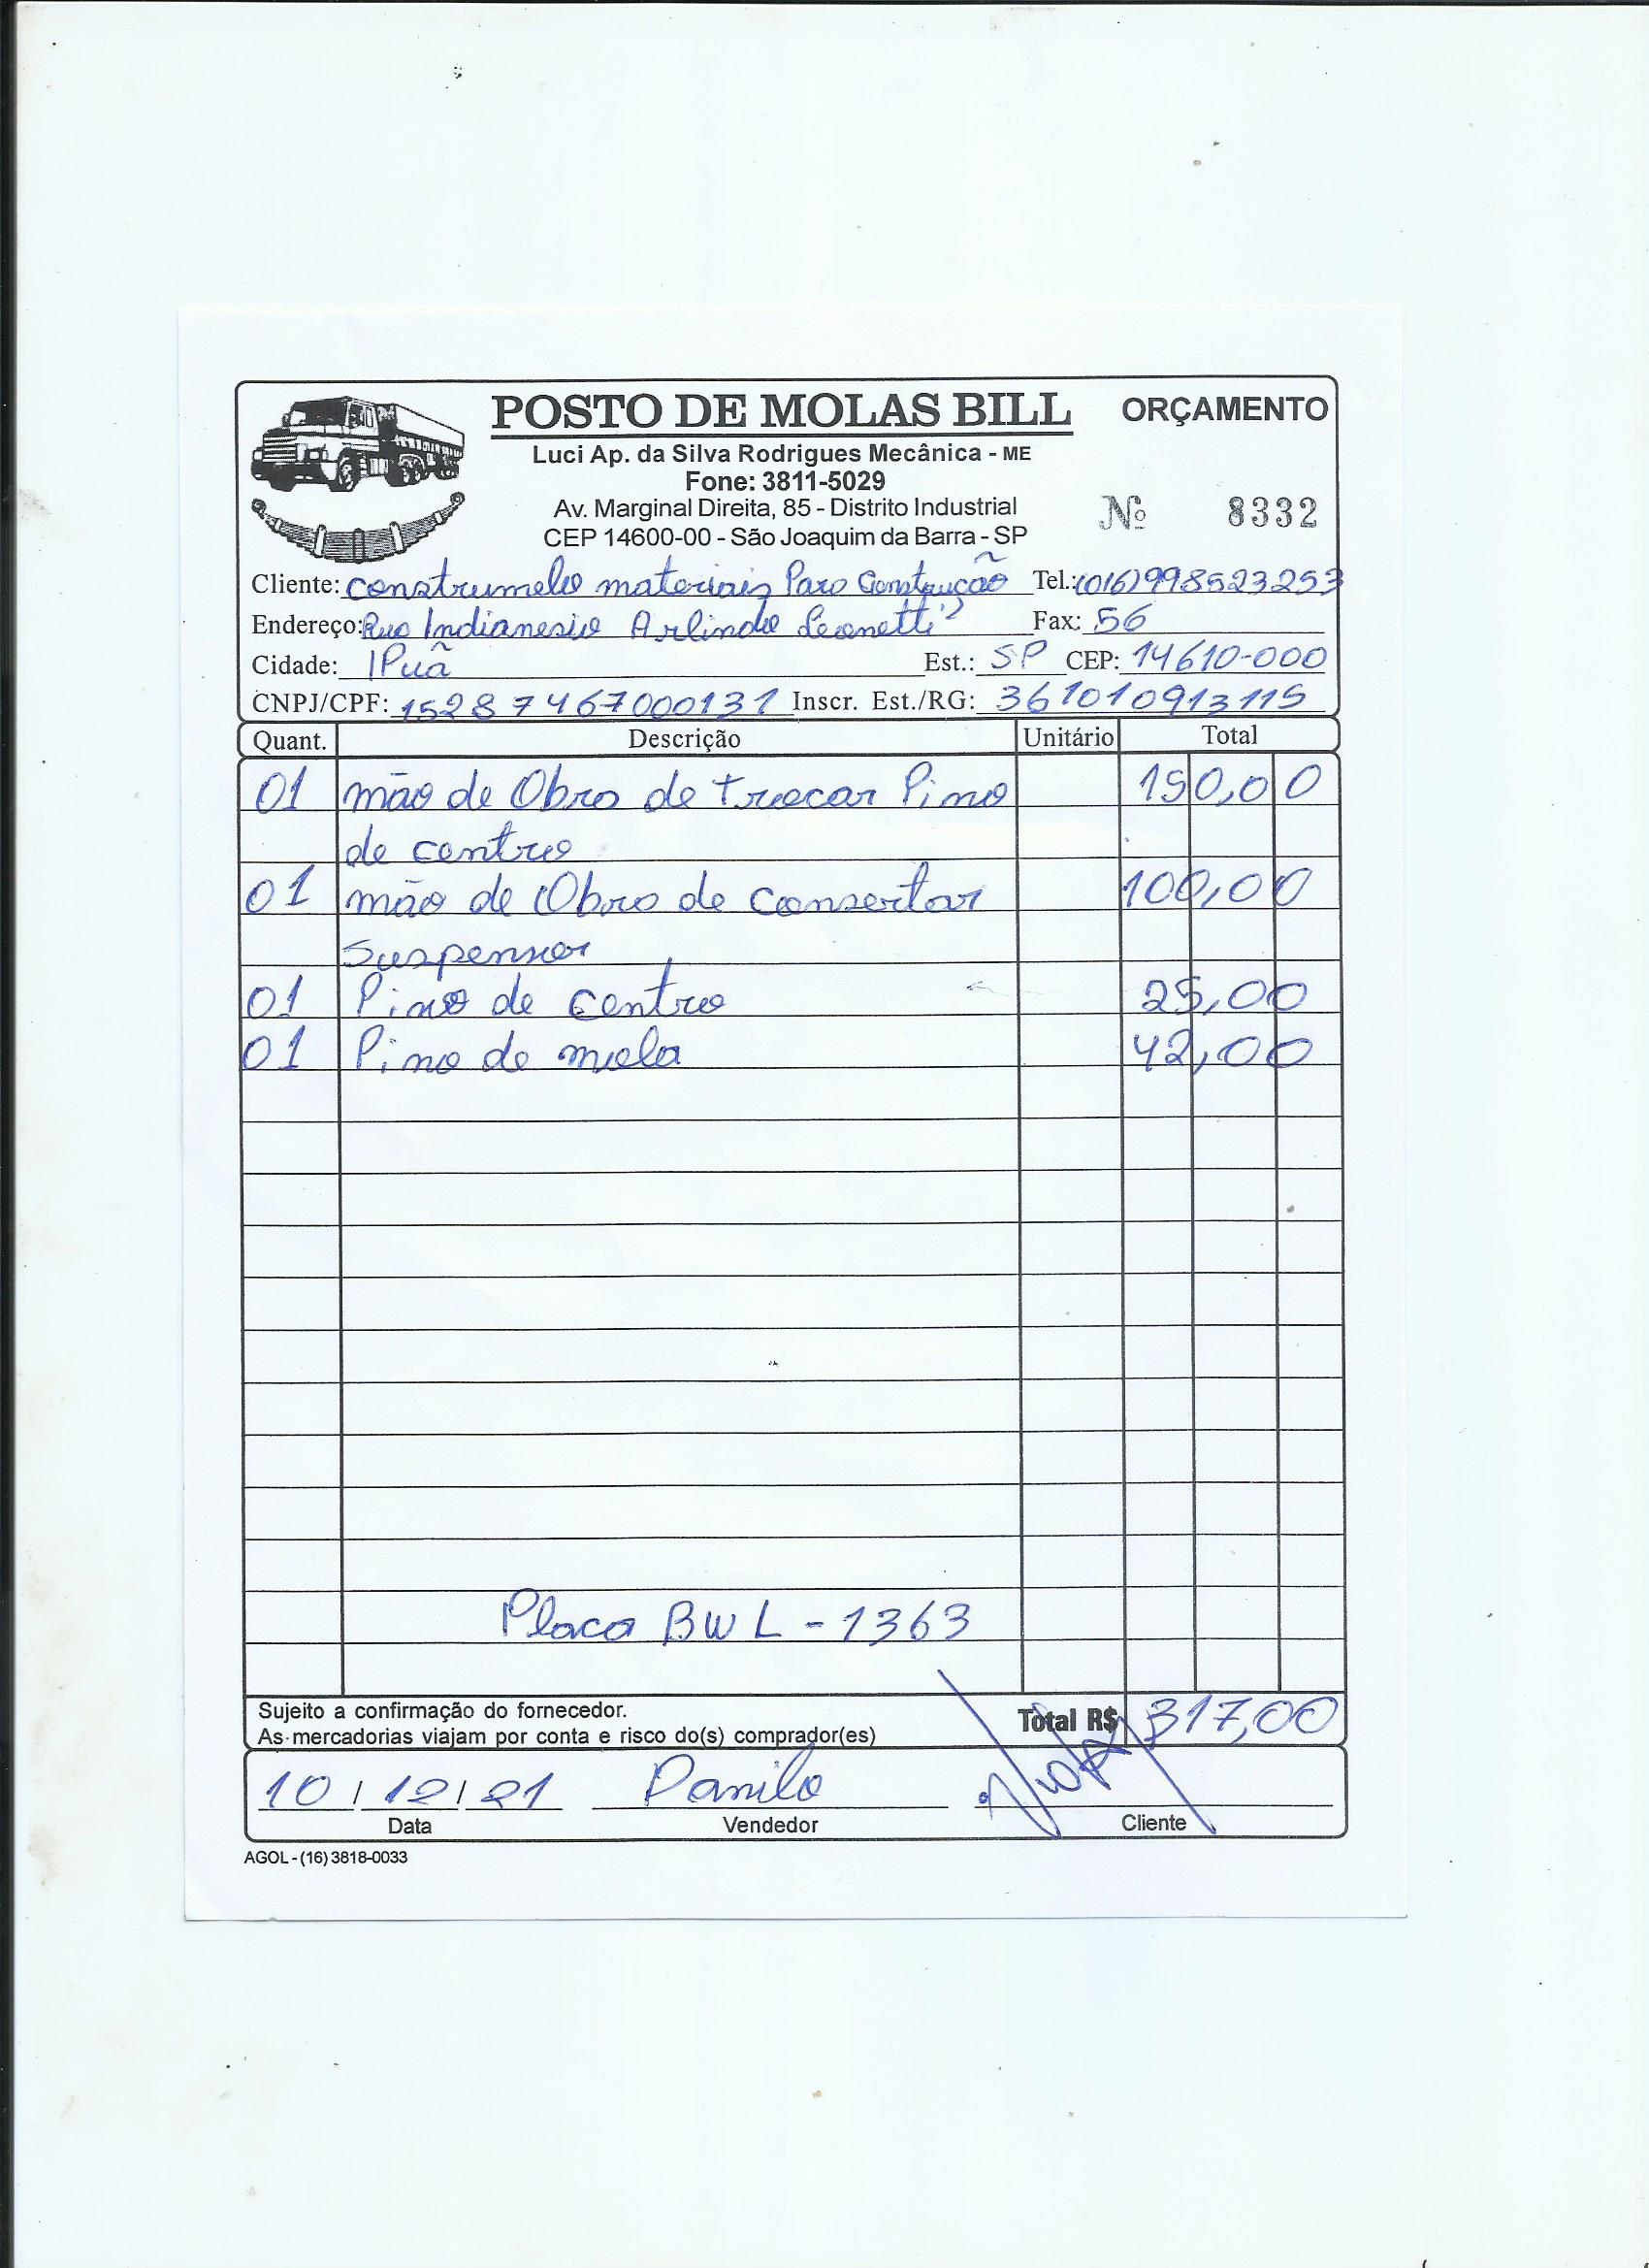 POSTO DE MOLAS BILL ORÇAMENTO
Luci Ap. da Silva Rodrigues Mecânica - ME
Fone: 3811-5029
Av. Marginal Direita, 85 - Distrito Industrial
Nº 8332
CEP 14600-00 - São Joaquim da Barra - SP
Cliente: construmelo materiais Para Construção Tel.: (016)998523253
Endereço: Rua Indianesio Arlindo Leonetti Fax: 56
Cidade: IPuã Est.: SP CEP: 14610-000
CNPJ/CPF: 15287467000131 Inscr. Est./RG: 361010913115
Quant. Descrição Unitário Total
01 mão de Obra de trocar Pino 150,00
de centro
01 mão de Obra de consertar 100,00
Suspensor
01 Pino de centro 25,00
01 Pino de mola 42,00
Placa BWL - 1363
Sujeito a confirmação do fornecedor.
As mercadorias viajam por conta e risco do(s) comprador(es)
Total R$ 317,00
10 / 12 / 21 Danilo
Data Vendedor Cliente
AGOL - (16) 3818-0033